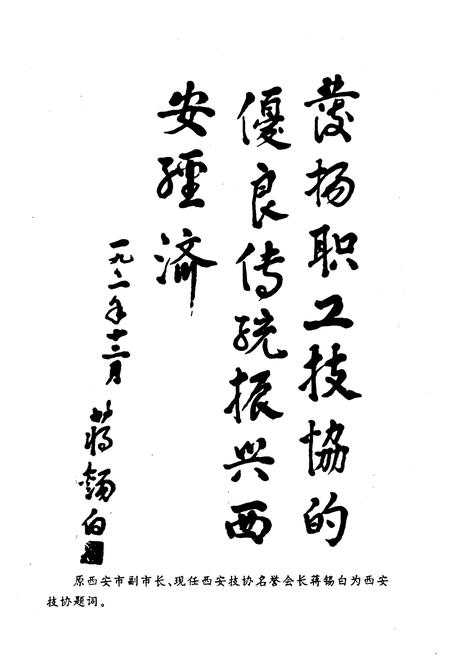 發扬职工技协的
優良传统振兴西
安經济
一九九二年十二月
蒋锡白
原西安市副市长、现任西安技协名誉会长蒋锡白为西安
技协题词。